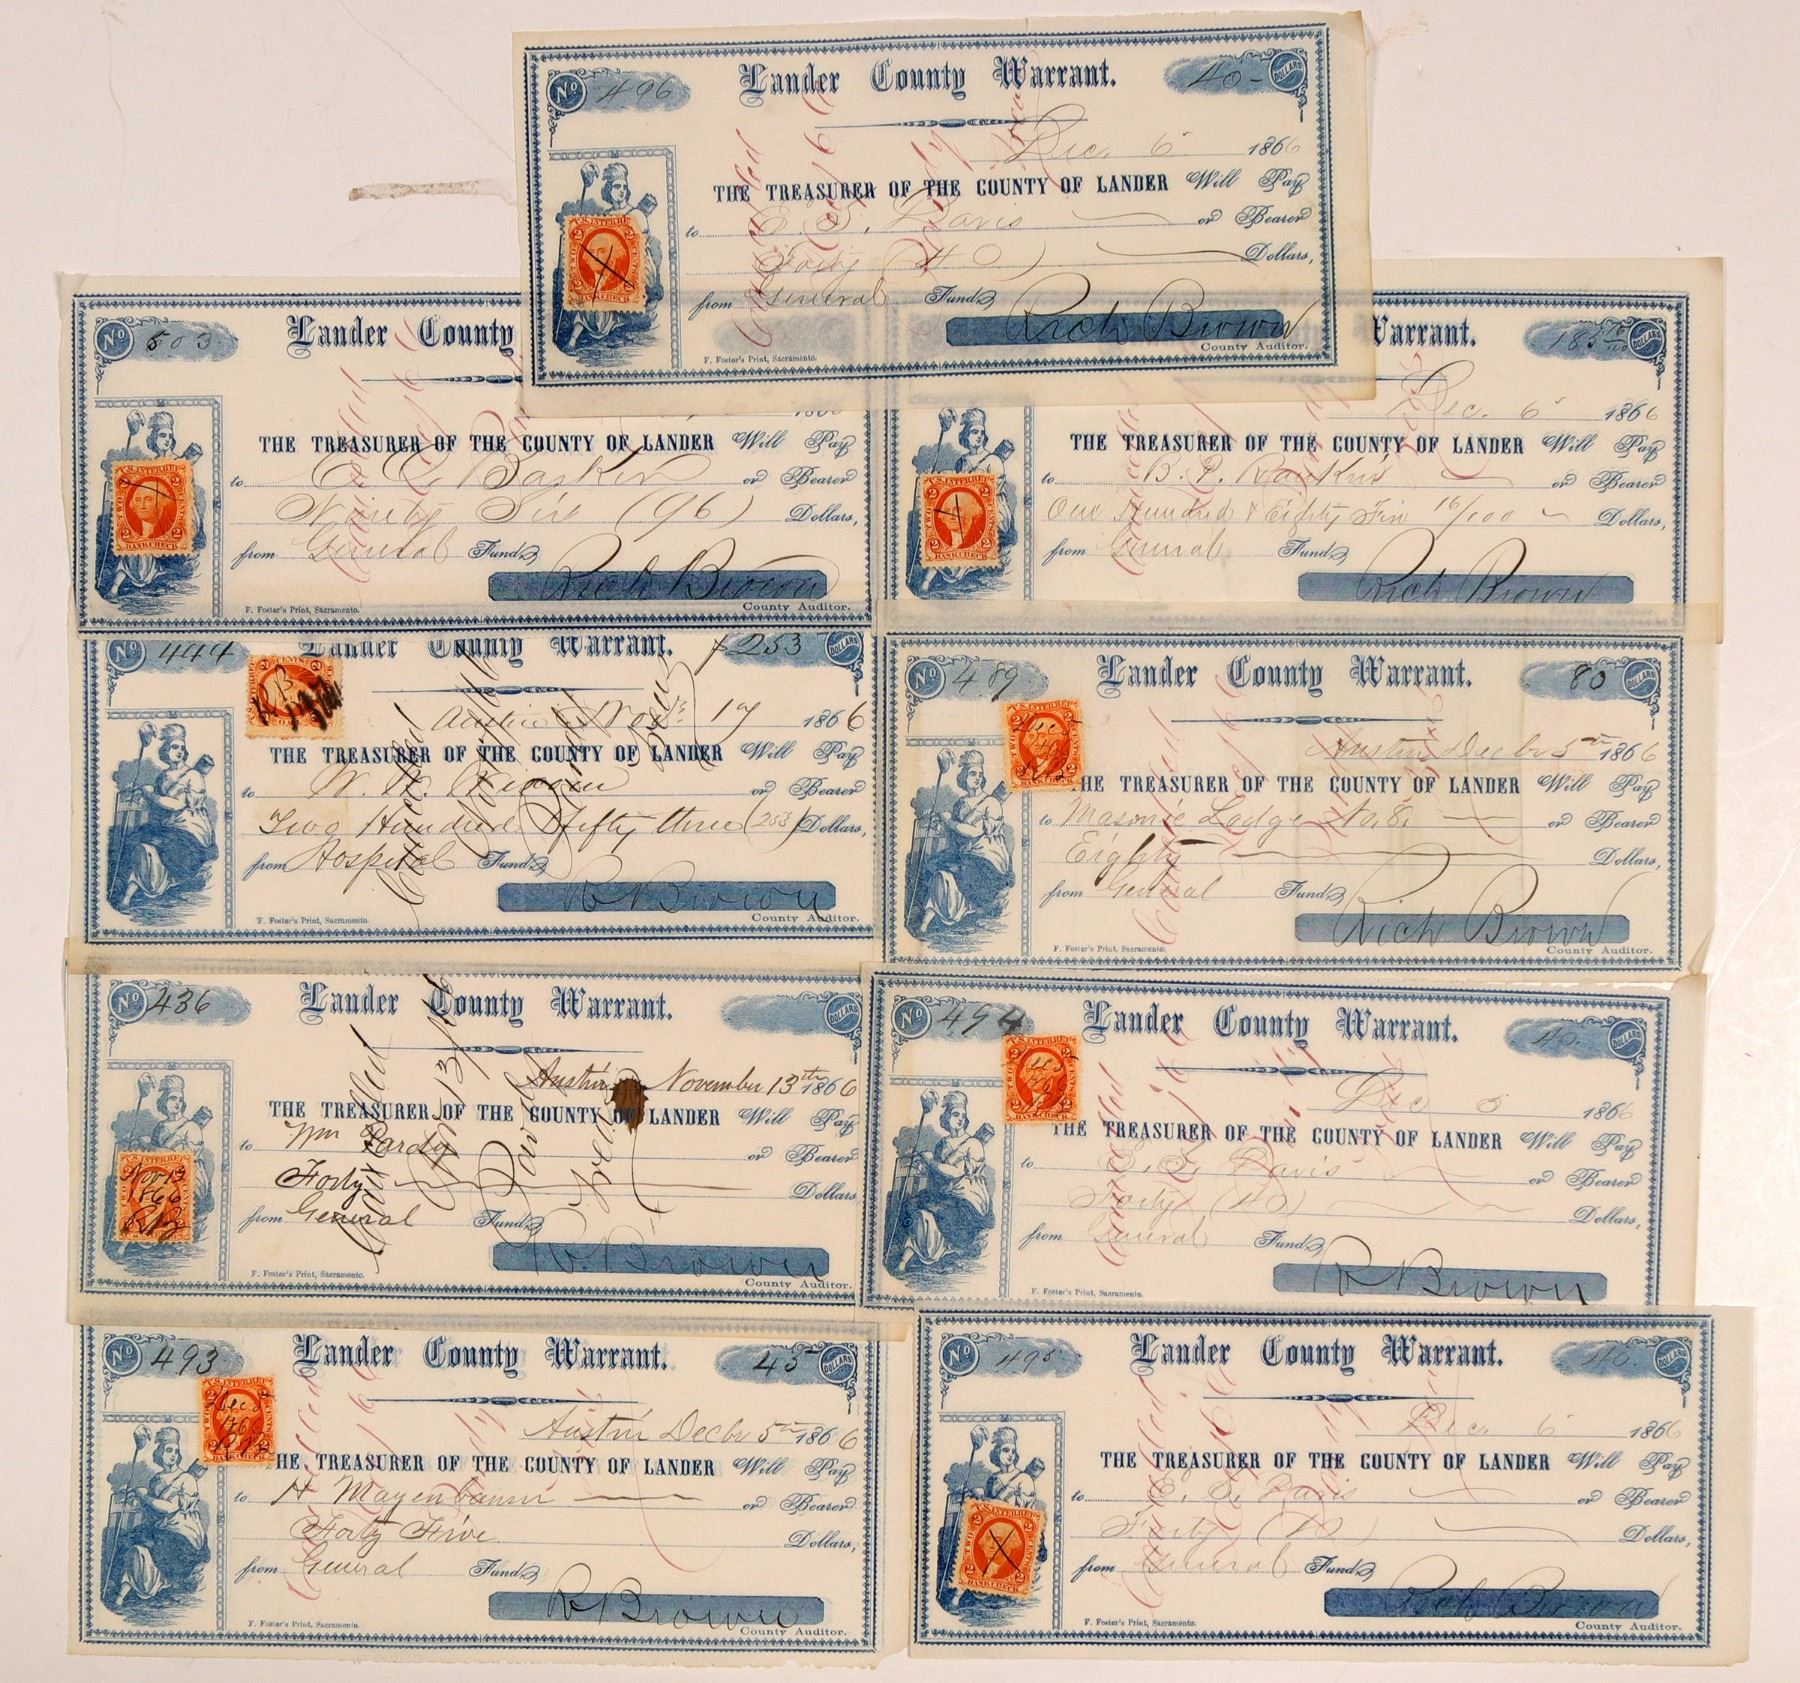 No 496 Lander County Warrant. 40- DOLLARS
Dec. 6 1866
THE TREASURER OF THE COUNTY OF LANDER Will Pay
to E. S. Davis or Bearer
Forty (40) Dollars,
from General Fund
Rich Brown
County Auditor.
F. Foster's Print, Sacramento.
U.S. INTER. REV.
TWO CENTS
BANK CHECK
No 503 Lander County
THE TREASURER OF THE COUNTY OF LANDER Will Pay
to or Bearer
Ninety Six (96) Dollars,
from General Fund
Rich Brown
County Auditor.
F. Foster's Print, Sacramento.
Warrant. 185 16/100 DOLLARS
Dec. 6 1866
THE TREASURER OF THE COUNTY OF LANDER Will Pay
to B. P. Rankin or Bearer
One Hundred & Eighty Five 16/100 Dollars,
from General Fund
Rich Brown
No 444 Lander County Warrant. $253 DOLLARS
Austin Nov. 17 1866
THE TREASURER OF THE COUNTY OF LANDER Will Pay
to W. W. or Bearer
Two Hundred & fifty three (253) Dollars,
from Hospital Fund
R Brown
County Auditor.
F. Foster's Print, Sacramento.
No 489 Lander County Warrant. 80 DOLLARS
Austin Decbr 5th 1866
THE TREASURER OF THE COUNTY OF LANDER Will Pay
to Masonic Lodge No. 8. or Bearer
Eighty Dollars,
from General Fund
Rich Brown
County Auditor.
F. Foster's Print, Sacramento.
No 436 Lander County Warrant. DOLLARS
Austin November 13th 1866
THE TREASURER OF THE COUNTY OF LANDER Will Pay
to Wm Pardy or Bearer
Forty Dollars
from General Fund
R. Brown
County Auditor.
F. Foster's Print, Sacramento.
Nov 13
1866
RB
No 494 Lander County Warrant. 40. DOLLARS
Dec 5 1866
THE TREASURER OF THE COUNTY OF LANDER Will Pay
to E. S. Davis or Bearer
Forty (40) Dollars,
from General Fund
R Brown
F. Foster's Print, Sacramento.
No 493 Lander County Warrant. 45 DOLLARS
Austin Decbr 5th 1866
THE TREASURER OF THE COUNTY OF LANDER Will Pay
to H Mayenbaum or Bearer
Forty Five Dollars,
from General Fund
R Brown
County Auditor.
F. Foster's Print, Sacramento.
No 495 Lander County Warrant. 40. DOLLARS
Dec. 6 1866
THE TREASURER OF THE COUNTY OF LANDER Will Pay
to E. S. Davis or Bearer
Forty (40) Dollars,
from General Fund
Rich Brown
County Auditor.
F. Foster's Print, Sacramento.